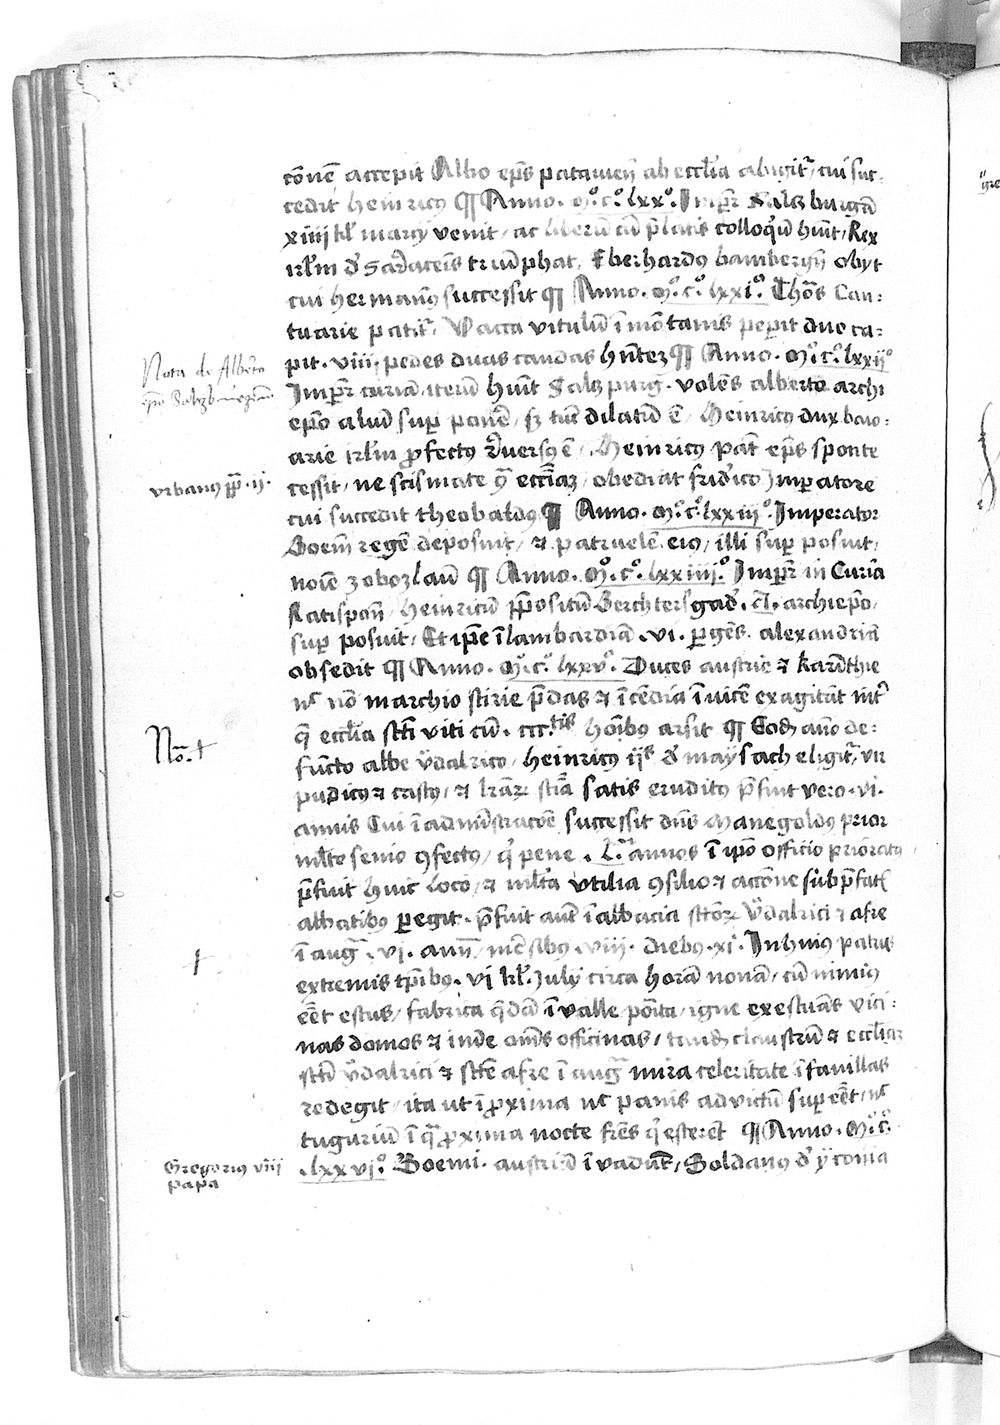 cōnē accepit Albo ep̄s patauieñ ab eccl̄ia abigit᷑ / cui suc-
cedit heinricꝯ ¶ Anno. Mº.cº.lxxº. Imp̄r Salczburgā
xiiii kl̄. marcij venit / ac liberū cū p̄latis colloq̄ū hūit / Rex
irl̄m d' Saracenis triūphat. Eberhardꝯ bambergeñ obyt
cui hermanꝯ successit ¶ Anno. Mº.cº.lxxiº. Thōs Can-
tuarie patit᷑. Vacca vitulū ī mōtanis pep̄it duo ca-
pit. viii. pedes duas caudas hñtez ¶ Anno. Mº.cº.lxxijº
Imp̄r curiā iterū hūit Salczpurg. volēs alberto archi
ep̄o aliū sup ponē / sꝫ tūc dilatū ē / Heinricꝯ dux baio-
arie irl̄m ꝓfectꝯ reuersꝯ ē / Heinricꝯ pat̄ ep̄s sponte
cessit / ne scismate q̄ ecctīaꝫ / obediat frid'ico Imp̱atore
cui succedit theobaldꝯ ¶ Anno. Mº.cº.lxxiijº. Imperator
Boem̄ regē deposuit / ⁊ patruelē eiꝯ / illi sup posuit /
noīe zobozlaū ¶ Anno. Mº.cº.lxxiiijº. Imp̄r in Curia
Ratispoñ / heinricū p̄positū Berchtersgad'. arc̄hiep̄o /
sup posuit / Et ip̄e ī lambardiā. vi. p̱gēs. alexandriā
obsedit ¶ Anno. Mº.cº.lxxvº. Duces austrie ⁊ karīthie
nc̄ nō marchio stirie p̄das ⁊ īcēdia īuicē exagitāt int᷑
q̄ eccl̄ia sct̄i viti cū. ccc.tis hoībꝯ arsit ¶ Eodē año de-
fūcto abbe v̊dalrico / heinricꝯ ijs d' maysach eligit᷑ / vir
pudicꝯ ⁊ castꝯ / ⁊ lr̄aꝝ scīa satis eruditꝯ p̄fuit vero. vi.
annis Cui ī admīstracōe successit dn̄s Manegoldꝯ prior
ml̄to senio ꝯfectꝯ / q̄ pene. L.ta annos ī ip̄o officio prioratꝯ
p̄fuit huic loco / ⁊ ml̄ta vtilia ꝯsilio ⁊ accōne sub p̄fat̄
abbatibꝯ p̱egit. p̄fuit aut̄ ī abbacia scōꝝ v̊dalrici ⁊ afre
ī aug̃. vi. anñ / mēsibꝯ. viii. diebꝯ. xi. In huiꝯ patris
extremis tp̄ibꝯ. vi kl̄. Iulij circa horā nonā / cū nimiꝯ
eēt estus / fabrica q̄dā ī valle pōita / igne exestuās vici-
nas domos ⁊ inde om̄s officinas / tandē claustrū ⁊ eccl̄iaꝫ
scī v̊dalrici ⁊ scē afre ī aug̃ mira celeritate ī fauillas
redegit / ita ut ī ꝓxima nc̄ panis ad victū sup eēt / nc̄
tuguriū ī q̄ ꝓxima nocte fr̄es q̄esterēt ¶ Anno. Mº.cº.
.lxxviº. Boemi. austriā īvadūt / Soldanus d' yconia
Nota de Alb̄to
vrbanꝯ pp̄. ij.
No. +
+
Gregorius viij
papa